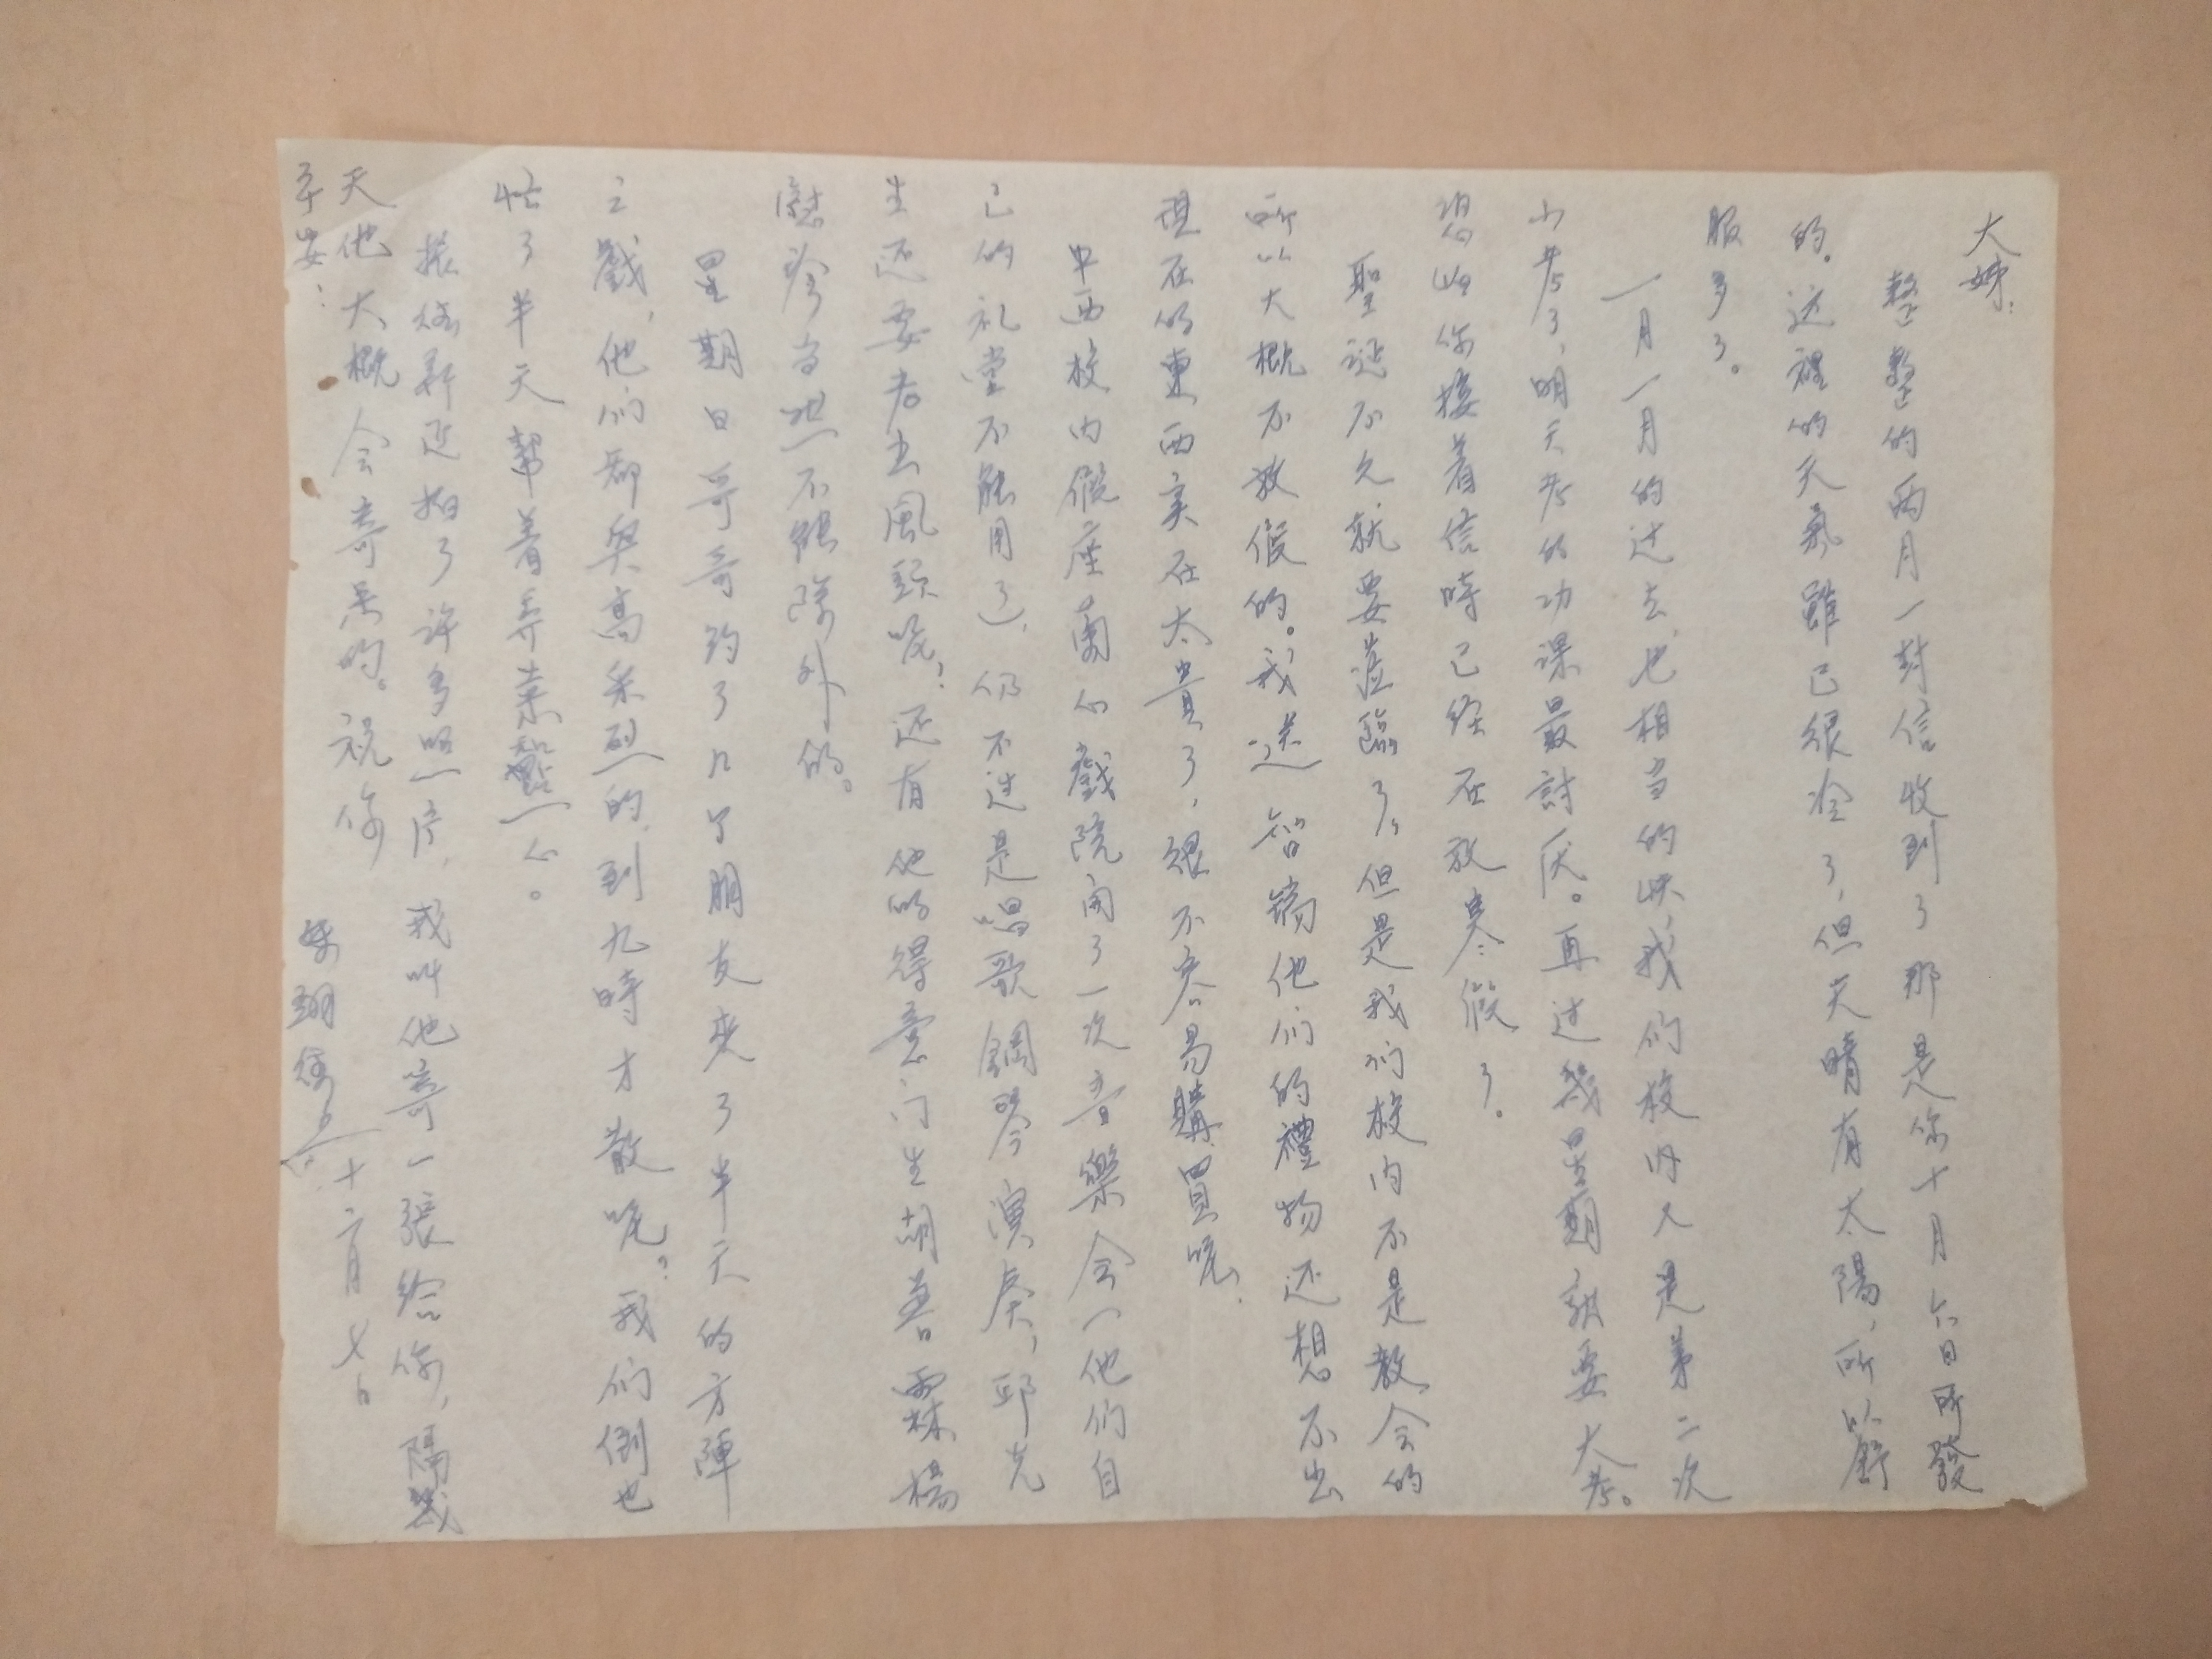 大姊：
整整的兩月一封信收到了那是你十月六日所發
的。这裡的天氣雖已很冷了，但天晴有太陽，所以舒
服多了。
一月一月的过去，也相当的快，我们校内又是第二次
小考了，明天考的功课最討厌。再过幾星期就要大考。
恐怕你接着信時已经在放寒假了。
聖誕不久就要蒞臨了，但是我们校内不是教会的
所以大概不放假的。我送 智鏑他们的禮物还想不出
現在的東西实在太貴了，很不容易購買呢，
中西校内假座蘭心戲院開了一次音樂会（他们自
己的礼堂不能用了），仍不过是唱歌鋼琴演奏，邱先
生还要老去風頭呢？还有他的得意门生胡蕙霖楊
慰 当然不能除外的。
星期日哥哥約了几个朋友來了半天的方陣
之戲，他们都興高采烈的，到九時才散呢？我们倒也
忙了半天幫着弄素點心。
振 新近拍了許多照片，我叫他寄一張給你，隔幾
天他大概会寄 的。祝你
平安！ 妹翊 上 十二月七日